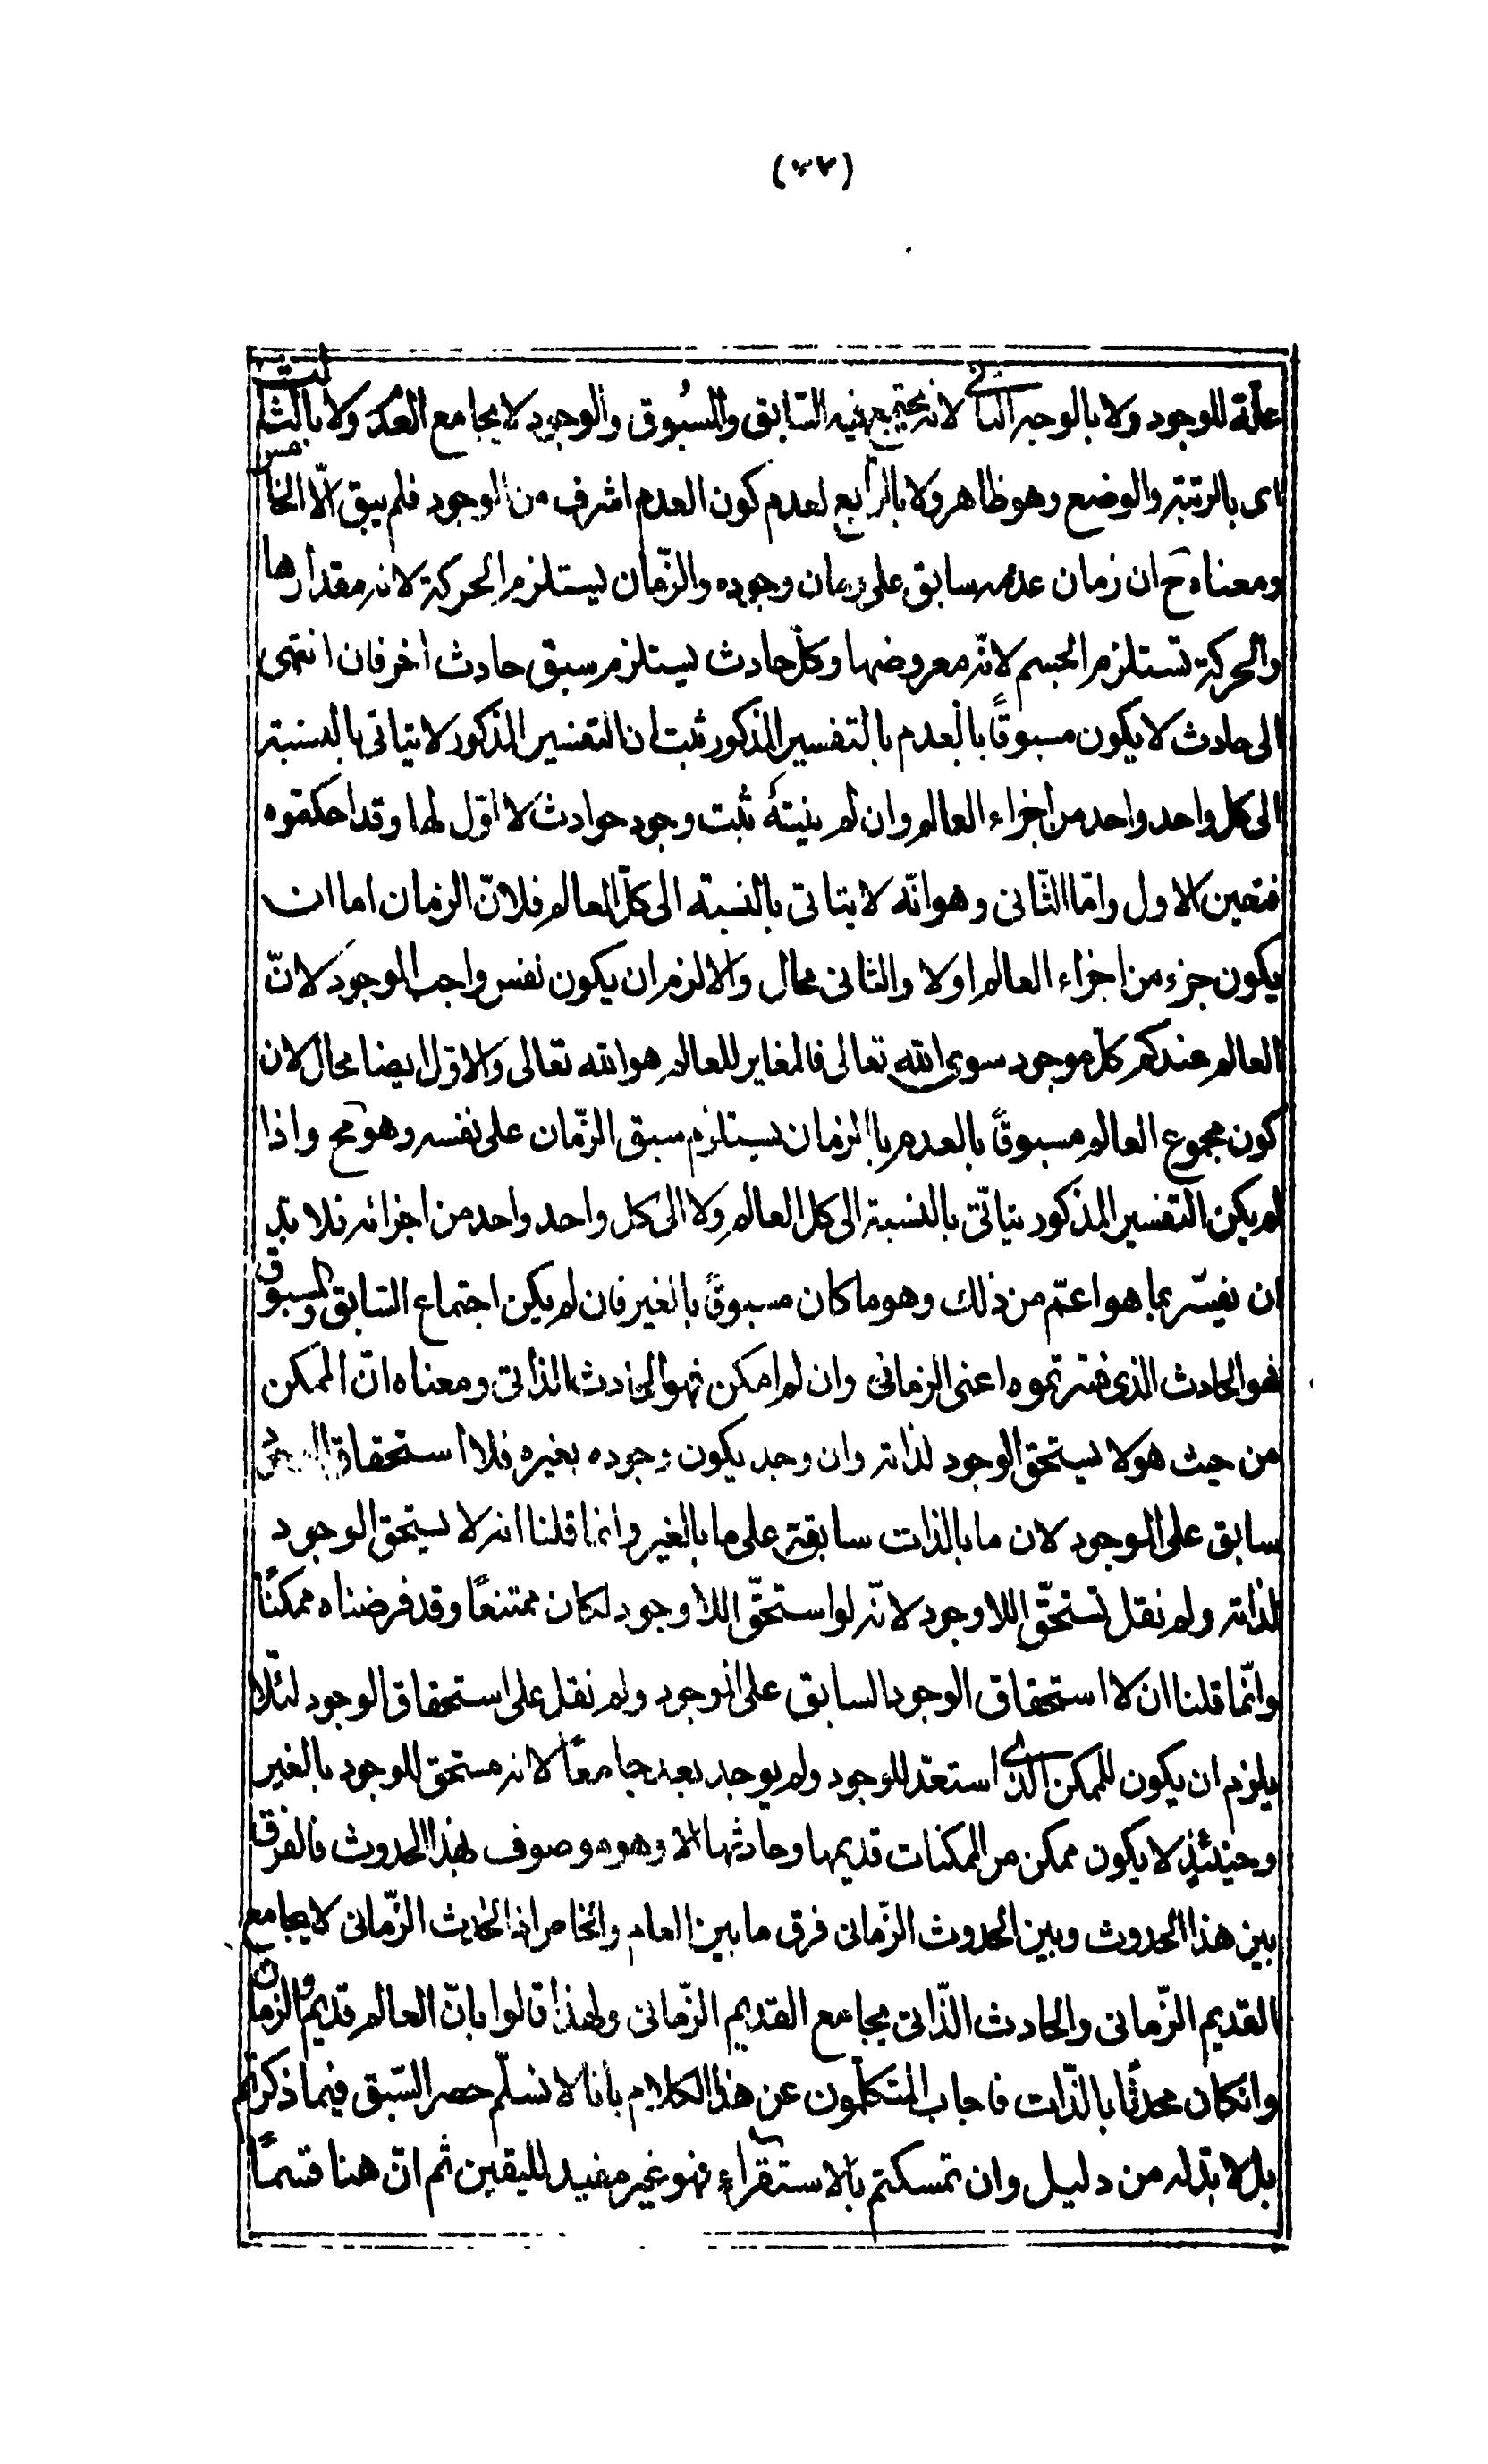 (٣٧)
علة للوجود ولا بالوجه الثانى لانه يجتمع فيه السّابق والمسبُوق والوجود لا يجامع العدم ولا بالثالث
اى بالرتبة والوضع وهو ظاهر ولا بالرابع لعدم كون العدم اشرف من الوجود فلم يبق الّا الخامس
ومعناه ح ان زمان عدمه سابق على زمان وجوده والزّمان يستلزم الحركة لانه مقدارها
والحركة تستلزم الجسم لانّه معروضها وكلّ حادث يستلزم سبق حادث اخر فان انتهى
الى حادث لا يكون مسبوقًا بالعدم بالتفسير المذكور ثبت ان التفسير المذكور لا يتاتى بالنسبة
الى كل واحد واحد من اجزاء العالم وان لم ينته ثبت وجود حوادث لا اوّل لها وقد احكمتموه
فتعين الاول وامّا الثّانى وهو انّه لا يتاتى بالنسبة الى كلّ العالم فلانّ الزمان اما ان
يكون جزء من اجزاء العالم اولا والثانى محال والا لزم ان يكون نفس واجب الوجود لانّ
العالم عندكم كلّ موجود سوى الله تعالى فالمغاير للعالم هو الله تعالى والاوّل ايضا محال لان
كون مجموع العالم مسبوقًا بالعدم بالزمان يستلزم سبق الزّمان على نفسه وهو مح واذا
لم يكن التفسير المذكور يتاتّى بالنسبة الى كل العالم ولا الى كل واحد واحد من اجزائه فلا بدّ
ان نفسّر بما هو اعمّ من ذلك وهو ما كان مسبوقًا بالغير فان لم يكن اجتماع السّابق والمسبوق
فهو الحادث الذى فسّرتموه اعنى الزمانى وان لم امكن فهو الحادث الذاتى ومعناه انّ الممكن
من حيث هو لا يستحق الوجود لذاته وان وجد يكون وجوده بغيره فلا استحقاق الوجود
سابق على الوجود لان ما بالذات سابقة على ما بالغير وانما قلنا انه لا يستحق الوجود
لذاته ولم نقل تستحقّ اللا وجود لانّه لو استحقّ اللا وجود لكان ممتنعًا وقد فرضناه ممكنًا
وانّما قلنا ان لا استحقاق الوجود السابق على الوجود ولم نقل على استحقاق الوجود لئلّا
يلزم ان يكون للممكن الذى استعدّ للوجود ولم يوجد بعد جامعًا لانه مستحق للوجود بالغير
وحينئذٍ لا يكون ممكن من الممكنات قديمها وحادثها الا وهو موصوف بهذا الحدوث فالفرق
بين هذا الحدوث وبين الحدوث الزّمانى فرق ما بين العام والخاص اذ الحادث الزّمانى لا يجامع
القديم الزّمانى والحادث الذّاتى يجامع القديم الزّمانى ولهذا قالوا بانّ العالم قديم بالزمان
وانكان محدثًا بالذّات فاجاب المتكلمون عن هذا الكلام بانا لا نسلّم حصر السّبق فيما ذكرتم
بل لا بدّ له من دليل وان تمسكتم بالاستقراء فهو غير مفيد لليقين ثم انّ هنا قسمًا